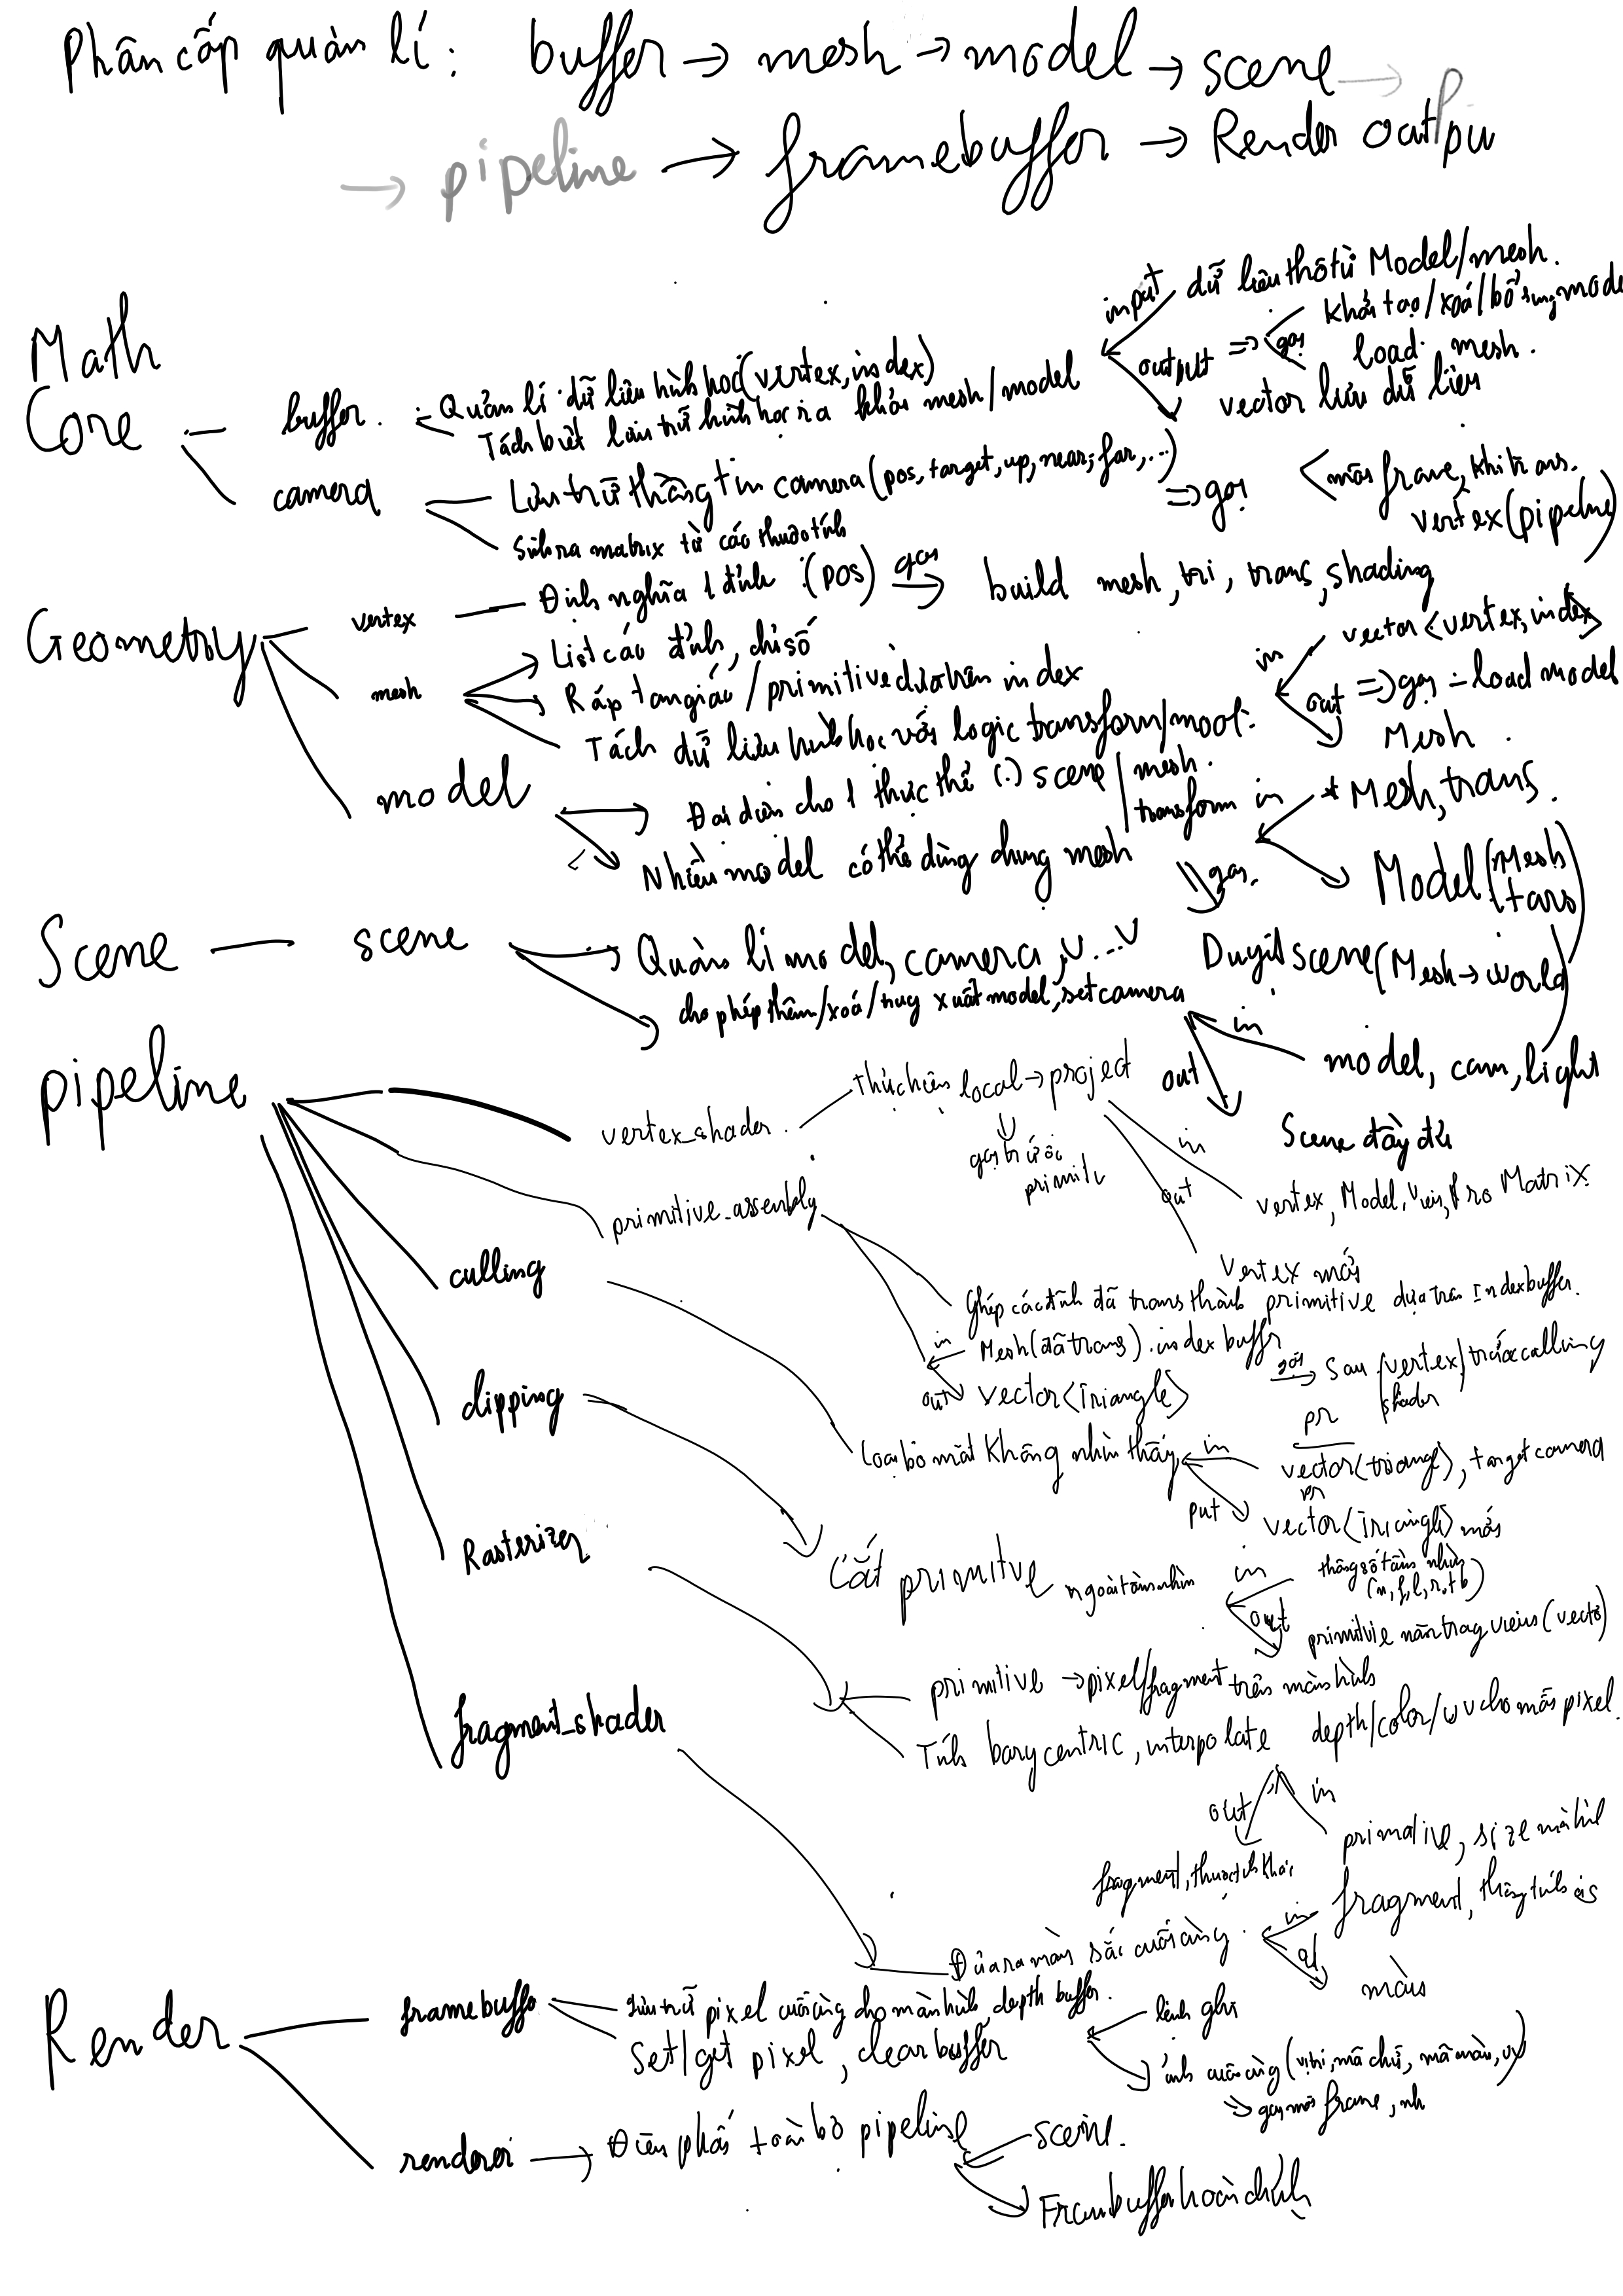 Phân cấp quản lí : buffer → mesh → model → scene → p
→ pipeline → framebuffer → Render outpu
Math
Core
buffer .
- Quản lí dữ liệu hình học (vertex, index)
Tách biệt lưu trữ hình học ra khỏi mesh/model
input dữ liệu thô từ Model/mesh.
output => gọi
khởi tạo/xoá/bổ sung mode
load mesh.
vector lưu dữ liệu
camera
Lưu trữ thông tin camera (pos, target, up, near, far, ...)
Sinh ra matrix từ các thuộc tính
=> gọi
mỗi frame, khi trans.
vertex (pipeline)
Geometry
vertex
Định nghĩa 1 đỉnh (pos) gọi → build mesh, tri, trans, shading
mesh
List các đỉnh, chỉ số
Ráp tam giác/primitive dựa trên index
Tách dữ liệu hình học với logic transform/model
in vector<vertex, index>
out => gọi - load model
Mesh .
model
Đại diện cho 1 thực thể (.) scene / mesh .
transform
Nhiều model có thể dùng chung mesh
in *Mesh, trans.
Model (Mesh
trans)
gọi.
Duyệt scene (Mesh → world)
Scene
scene
Quản lí model, camera, v...v
cho phép thêm/xoá/truy xuất model, set camera
in model, cam, light
out
Scene đầy đủ
pipeline
vertex_shader .
thực hiện local → project
gọi trước
primitiv
in vertex, Model, View, Pro Matrix
out
Vertex mới
primitive_assembly
Ghép các đỉnh đã trans thành primitive dựa trên Indexbuffer.
in Mesh (đã trans) . index buffr
gọi → Sau (vertex) trước culling
shader
out vector<Triangle>
culling
Loại bỏ mặt không nhìn thấy
pr
in vector<triangl>, target camera
pr
put vector<Triangle> mới
clipping
Cắt primitve ngoài tầm nhìn
in thông số tầm nhìn
(n, f, l, r, t b)
out primitvie nằm trong views (vectơ)
Rasterizer
primitive → pixel/fragment trên màn hình
Tính barycentric, interpolate depth/color/uv cho mỗi pixel.
in
primative, size mà hìl
out
fragment, thuộc tính khác
fragment_shader
Đưa ra màu sắc cuối cùng .
in fragment,
màu
Render
framebuffo
Lưu trữ pixel cuối cùng cho màn hình, depth buffer.
Set/get pixel, clear buffer
lệnh ghi
ảnh cuối cùng
=> gọi mỗi frame,
renderer
→ Điều phối toàn bộ pipeline
scene.
Frambuffer hoàn chỉnh